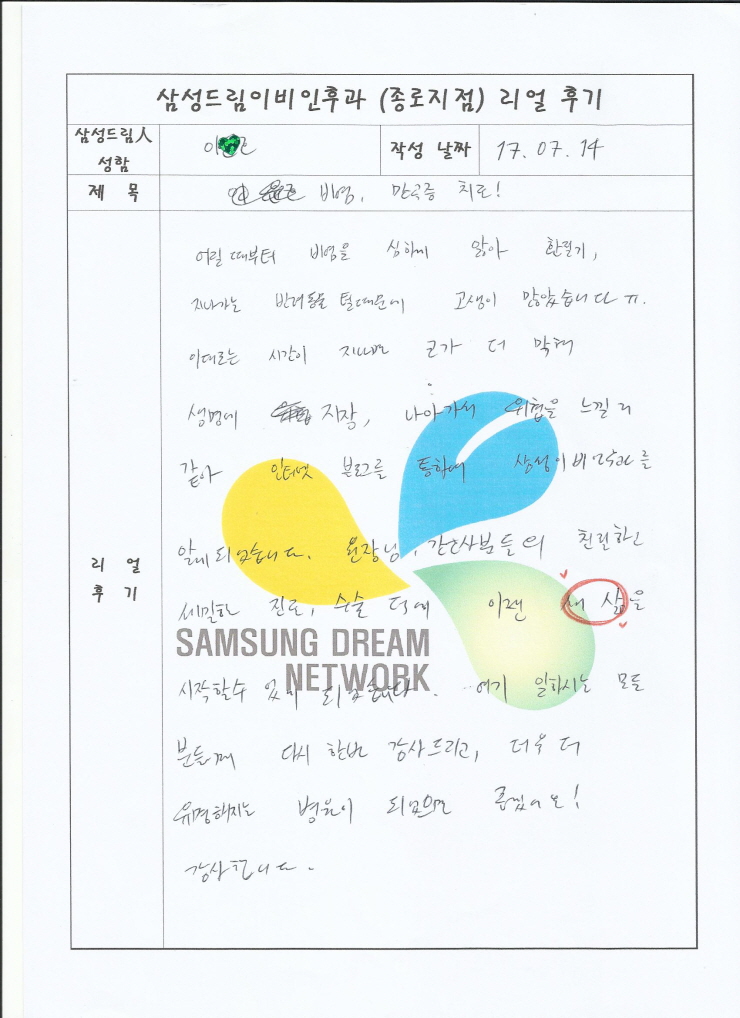 삼성드림이비인후과 (종로지점) 리얼 후기
삼성드림人 성함
이
작성 날짜
17. 07. 14
제 목
비염, 만곡증 치료!
리 얼 후 기
어릴 때부터 비염을 심하게 앓아 환절기,
지나가는 반려동물 털때문에 고생이 많았습니다 ㅠ.
이대로는 시간이 지나면 코가 더 막혀
생명에 지장, 나아가서 위협을 느낄 거
같아 인터넷 블로그를 통하여 삼성이비인후과를
알게 되었습니다. 원장님, 간호사분들의 친절하고
세밀한 진료, 수술 덕에 이젠 새 삶을
SAMSUNG DREAM
NETWORK
시작할수 있게 되었습니다. 여기 일하시는 모든
분들께 다시 한번 감사드리고, 더욱 더
유명해지는 병원이 되었으면 좋겠어요!
감사합니다.